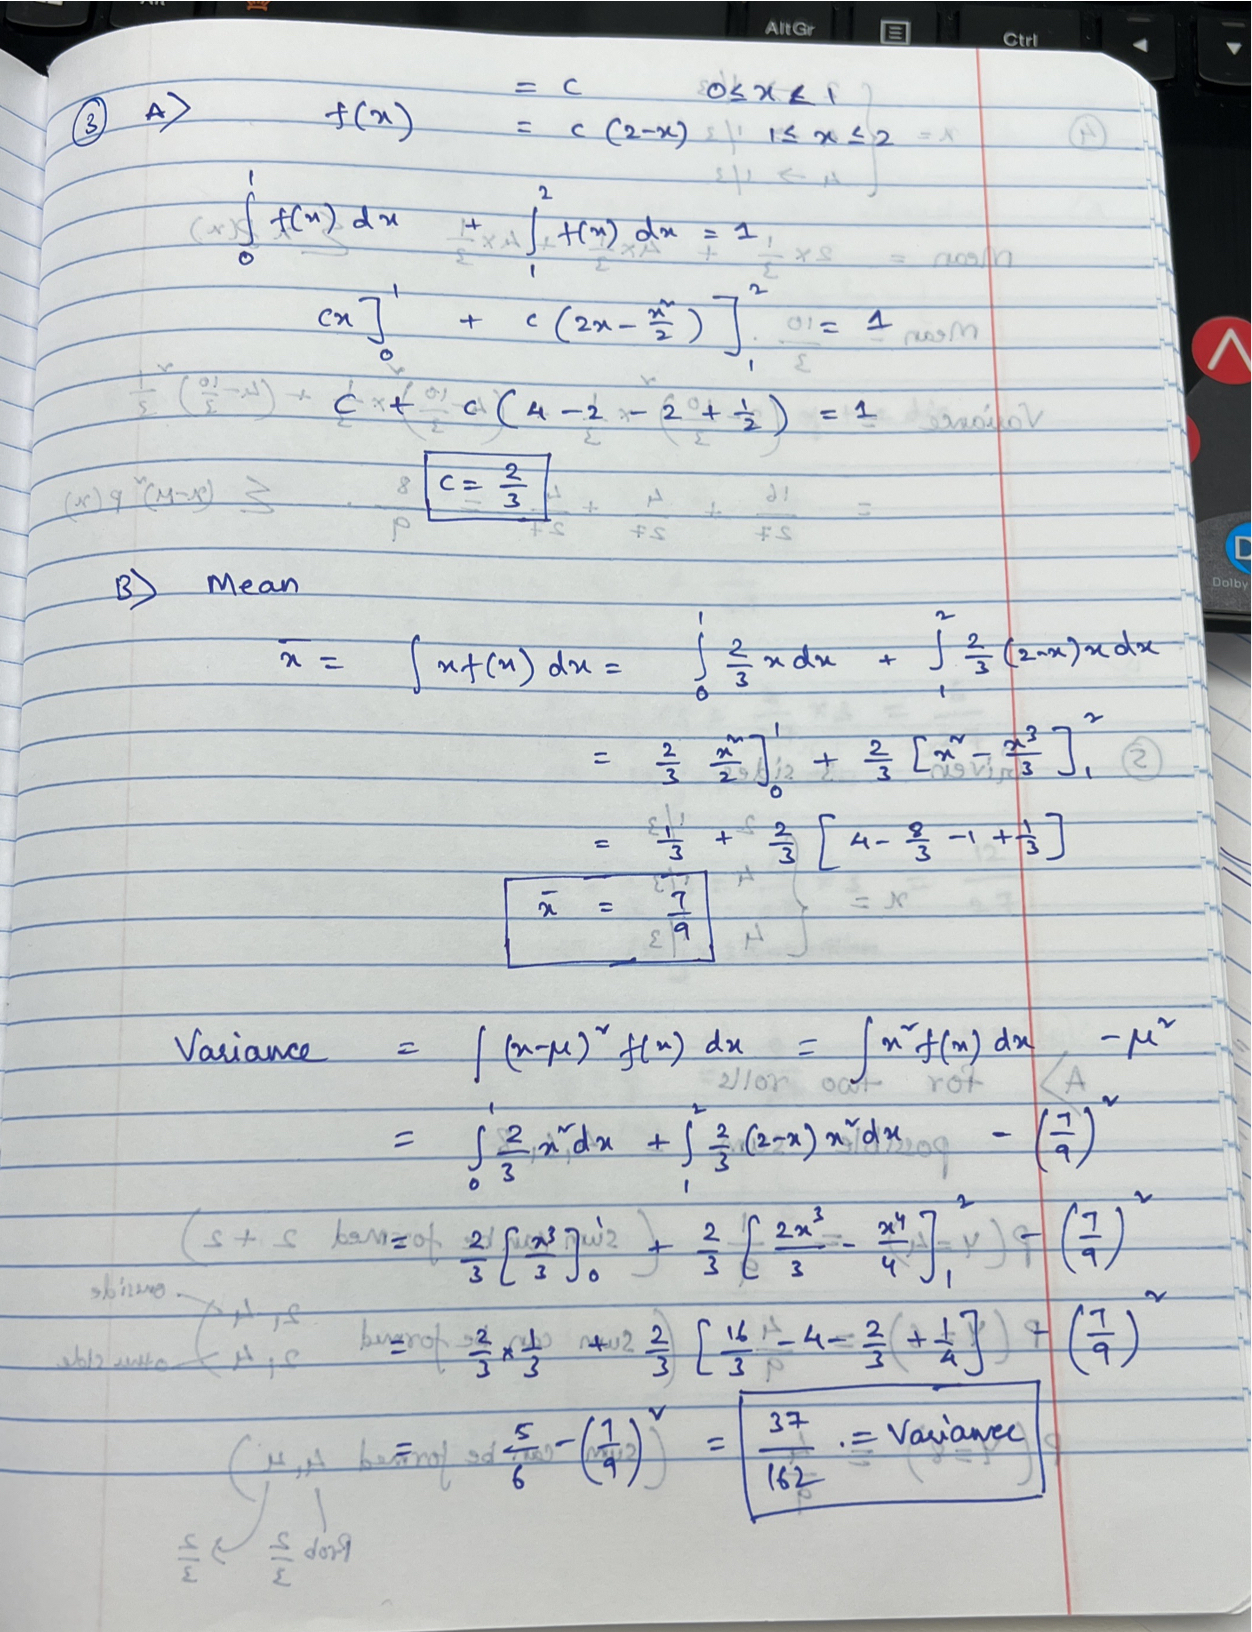 AltGr
Ctrl
= c 0≤x<1
③ A> f(x)
= c (2-x) 1≤ x ≤2
∫₀¹ f(x) dx + ∫₁² f(x) dx = 1
cx]₀¹ + c (2x - x²/2)]₁² = 1
c + c (4 - 2 - 2 + 1/2) = 1
c = 2/3
Dolby
B> Mean
x̄ = ∫ x f(x) dx = ∫₀¹ 2/3 x dx + ∫₁² 2/3 (2-x) x dx
= 2/3 x²/2]₀¹ + 2/3 [x² - x³/3]₁²
= 1/3 + 2/3 [4 - 8/3 - 1 + 1/3]
x̄ = 7/9
Variance = ∫ (x-μ)² f(x) dx = ∫ x² f(x) dx - μ²
= ∫₀¹ 2/3 x² dx + ∫₁² 2/3 (2-x) x² dx - (7/9)²
= 2/3 [x³/3]₀¹ + 2/3 [2x³/3 - x⁴/4]₁² - (7/9)²
= 2/3 × 1/3 + 2/3 [16/3 - 4 - 2/3 + 1/4] - (7/9)²
= 5/6 - (7/9)² = 37/162 . = Variance